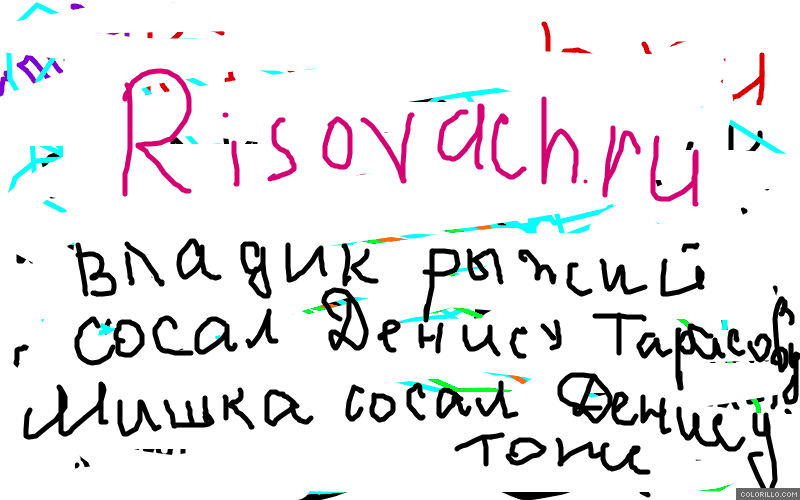 Risovach.ru
Владик рыжий
сосал Денису Тарасову
Мишка сосал Денису
тоже
COLORILLO.COM